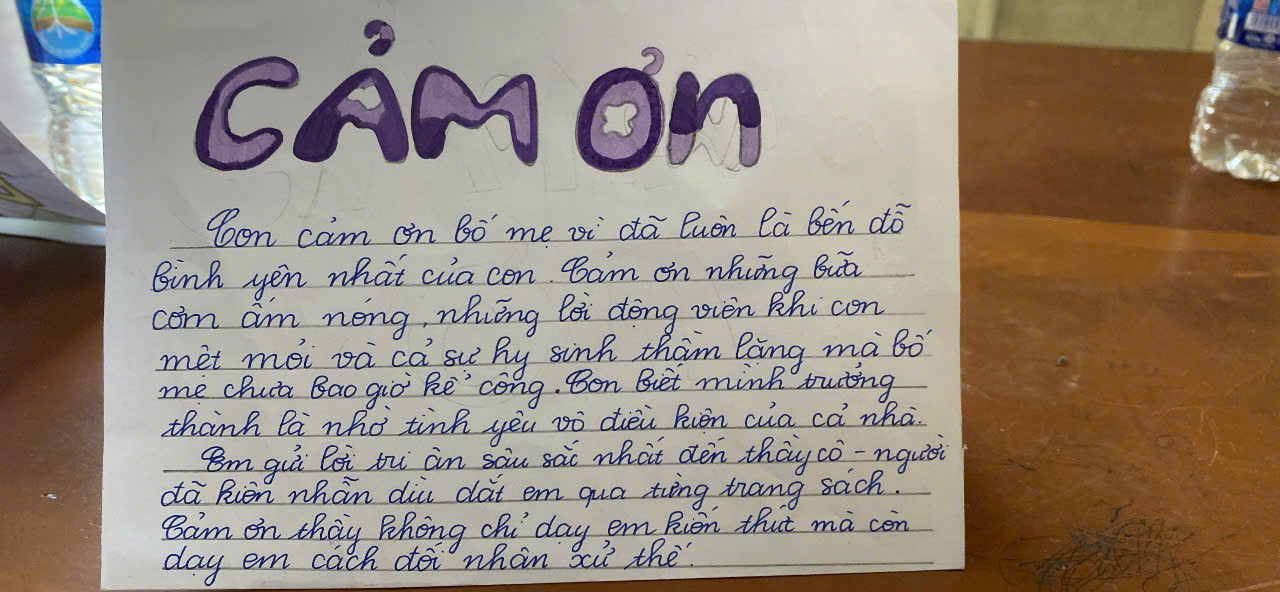 CẢM ƠN
Con cảm ơn bố mẹ vì đã luôn là bến đỗ
bình yên nhất của con. Cảm ơn những bữa
cơm ấm nóng, những lời động viên khi con
mệt mỏi và cả sự hy sinh thầm lặng mà bố
mẹ chưa bao giờ kể công. Con biết mình trưởng
thành là nhờ tình yêu vô điều kiện của cả nhà.
Em gửi lời tri ân sâu sắc nhất đến thầy cô - người
đã kiên nhẫn dìu dắt em qua từng trang sách.
Cảm ơn thầy không chỉ dạy em kiến thức mà còn
dạy em cách đối nhân xử thế.